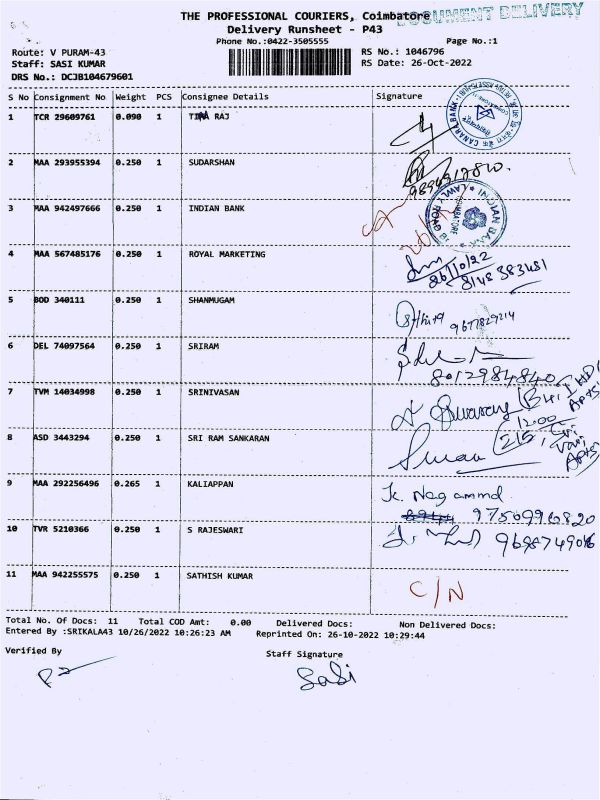 THE PROFESSIONAL COURIERS, Coimbatore
DOCUMENT DELIVERY
Delivery Runsheet - P43
Phone No.:0422-3505555 Page No.:1
Route: V PURAM-43 RS No.: 1046796
Staff: SASI KUMAR RS Date: 26-Oct-2022
DRS No.: DCJB104679601
S No Consignment No Weight PCS Consignee Details Signature
1 TCR 29609761 0.090 1 RAJ
CANARA BANK
2 MAA 293955394 0.250 1 SUDARSHAN
3 MAA 942497666 0.250 1 INDIAN BANK
INDIAN BANK
4 MAA 567485176 0.250 1 ROYAL MARKETING
26/10/22
8148383481
5 BOD 340111 0.250 1 SHANMUGAM
9677829214
6 DEL 74097564 0.250 1 SRIRAM
8012984840
7 TVM 14034998 0.250 1 SRINIVASAN
8 ASD 3443294 0.250 1 SRI RAM SANKARAN
9 MAA 292256496 0.265 1 KALIAPPAN
K. Nagammal
9750996820
10 TVR 5210366 0.250 1 S RAJESWARI
11 MAA 942255575 0.250 1 SATHISH KUMAR C/N
Total No. Of Docs: 11 Total COD Amt: 0.00 Delivered Docs: Non Delivered Docs:
Entered By :SRIKALA43 10/26/2022 10:26:23 AM Reprinted On: 26-10-2022 10:29:44
Verified By Staff Signature
Sasi